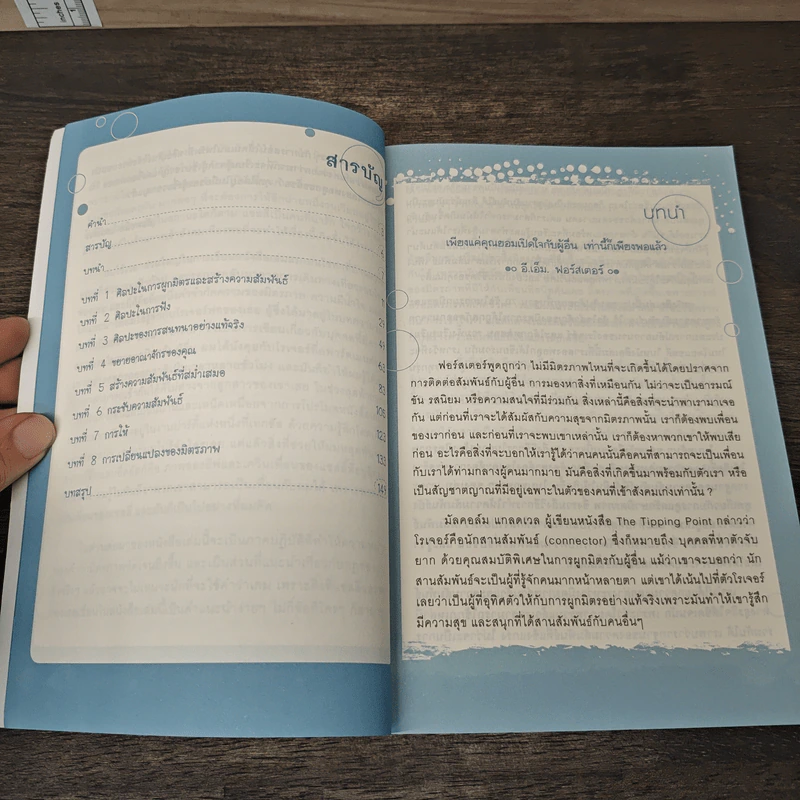 inches
1
สารบัญ
คำนำ 3
สารบัญ
บทนำ 7
บทที่ 1 ศิลปะในการผูกมิตรและสร้างความสัมพันธ์
บทที่ 2 ศิลปะในการฟัง 29
บทที่ 3 ศิลปะของการสนทนาอย่างแท้จริง 49
บทที่ 4 ขยายอาณาจักรของคุณ 63
บทที่ 5 สร้างความสัมพันธ์ที่สม่ำเสมอ 83
บทที่ 6 กระชับความสัมพันธ์ 105
บทที่ 7 การให้ 123
บทที่ 8 การเปลี่ยนแปลงของมิตรภาพ 133
บทสรุป 145
บทนำ
เพียงแค่คุณยอมเปิดใจกับผู้อื่น เท่านี้ก็เพียงพอแล้ว
๑๐ อี.เอ็ม. ฟอร์สเตอร์ ๐๑
ฟอร์สเตอร์พูดถูกว่า ไม่มีมิตรภาพไหนที่จะเกิดขึ้นได้โดยปราศจาก
การติดต่อสัมพันธ์กับผู้อื่น การมองหาสิ่งที่เหมือนกัน ไม่ว่าจะเป็นอารมณ์
ขัน รสนิยม หรือความสนใจที่มีร่วมกัน สิ่งเหล่านี้คือสิ่งที่จะนำพาเรามาเจอ
กัน แต่ก่อนที่เราจะได้สัมผัสกับความสุขจากมิตรภาพนั้น เราก็ต้องพบเพื่อน
ของเราก่อน และก่อนที่เราจะพบเขาเหล่านั้น เราก็ต้องหาพวกเขาให้พบเสีย
ก่อน อะไรคือสิ่งที่จะบอกให้เรารู้ได้ว่าคนคนนั้นคือคนที่สามารถจะเป็นเพื่อน
กับเราได้ท่ามกลางผู้คนมากมาย มันคือสิ่งที่เกิดขึ้นมาพร้อมกับตัวเรา หรือ
เป็นสัญชาตญาณที่มีอยู่เฉพาะในตัวของคนที่เข้าสังคมเก่งเท่านั้น ?
มัลคอล์ม แกลดเวล ผู้เขียนหนังสือ The Tipping Point กล่าวว่า
โรเจอร์คือนักสานสัมพันธ์ (connector) ซึ่งก็หมายถึง บุคคลที่หาตัวจับ
ยาก ด้วยคุณสมบัติพิเศษในการผูกมิตรกับผู้อื่น แม้ว่าเขาจะบอกว่า นัก
สานสัมพันธ์จะเป็นผู้ที่รู้จักคนมากหน้าหลายตา แต่เขาได้เน้นไปที่ตัวโรเจอร์
เลยว่าเป็นผู้ที่อุทิศตัวให้กับการผูกมิตรอย่างแท้จริงเพราะมันทำให้เขารู้สึก
มีความสุข และสนุกที่ได้สานสัมพันธ์กับคนอื่นๆ